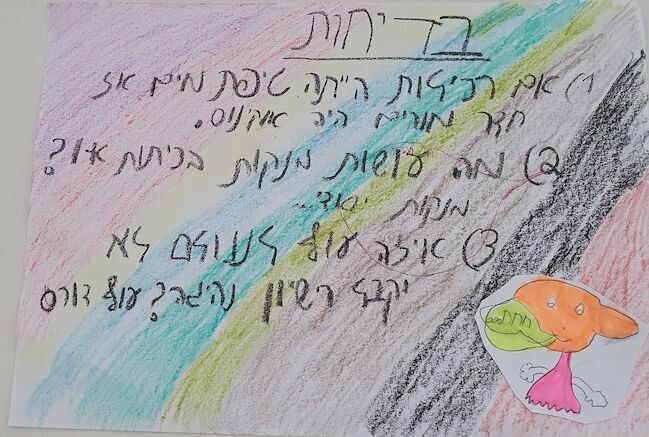 בדיחות
1) אם רכילות הייתה טיפת מים אז
חדר מורים היה אוקינוס.
2) מה עושות מנקות בכיתות א-ו?
מנקות יסודי...
3) איזה עוף לעולם לא
יקבל רשיון נהיגה? עוף דורס
חחח